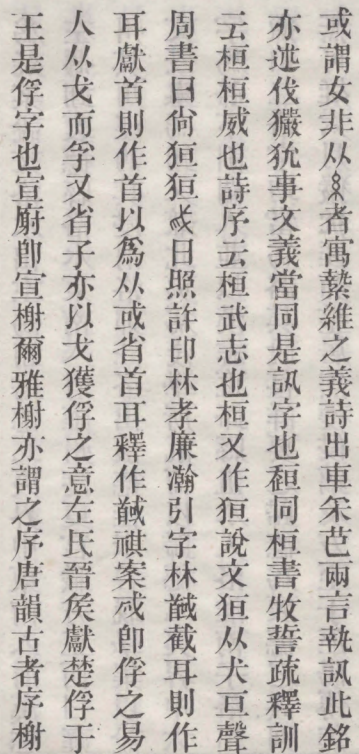 或謂女非从糸者寓縶維之義詩出車采芑兩言執訊此銘
亦述伐玁狁事文義當同是訊字也䄧同桓書牧誓疏釋訓
云桓桓威也詩序云桓武志也桓又作狟說文狟从犬亘聲
周書曰尙狟狟日照許印林孝廉瀚引字林馘截耳則作
耳獻首則作首以爲从或省首耳釋作馘祺案卽俘之易
人从戈而孚又省子亦以戈獲俘之意左氏晉矦獻楚俘于
王是俘字也宣廟卽宣榭爾雅榭亦謂之序唐韻古者序榭